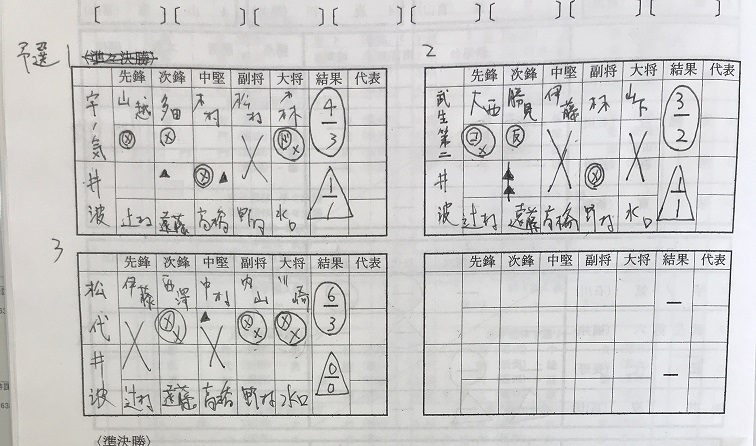 [ ] [ ] [ ] [ ] [ ] [ ]
予選 1 (準々決勝)
先鋒 次鋒 中堅 副将 大将 結果 代表
宇ノ気 山越 多田 木村 松村 森
メ メ ド メ 4/3
▲ メ ▲ 1/1
井波 辻村 遠藤 高橋 野村 水口
2
先鋒 次鋒 中堅 副将 大将 結果 代表
武生第二 大西 勝見 伊藤 林 山下
コ メ 反 3/2
▲ ▲ メ 1/1
井波 辻村 遠藤 高橋 野村 水口
3
先鋒 次鋒 中堅 副将 大将 結果 代表
松代 伊藤 西澤 中村 内山
メ メ ▲ メ メ メ メ 6/3
0/0
井波 辻村 遠藤 高橋 野村 水口
先鋒 次鋒 中堅 副将 大将 結果 代表
—
—
〈準決勝〉